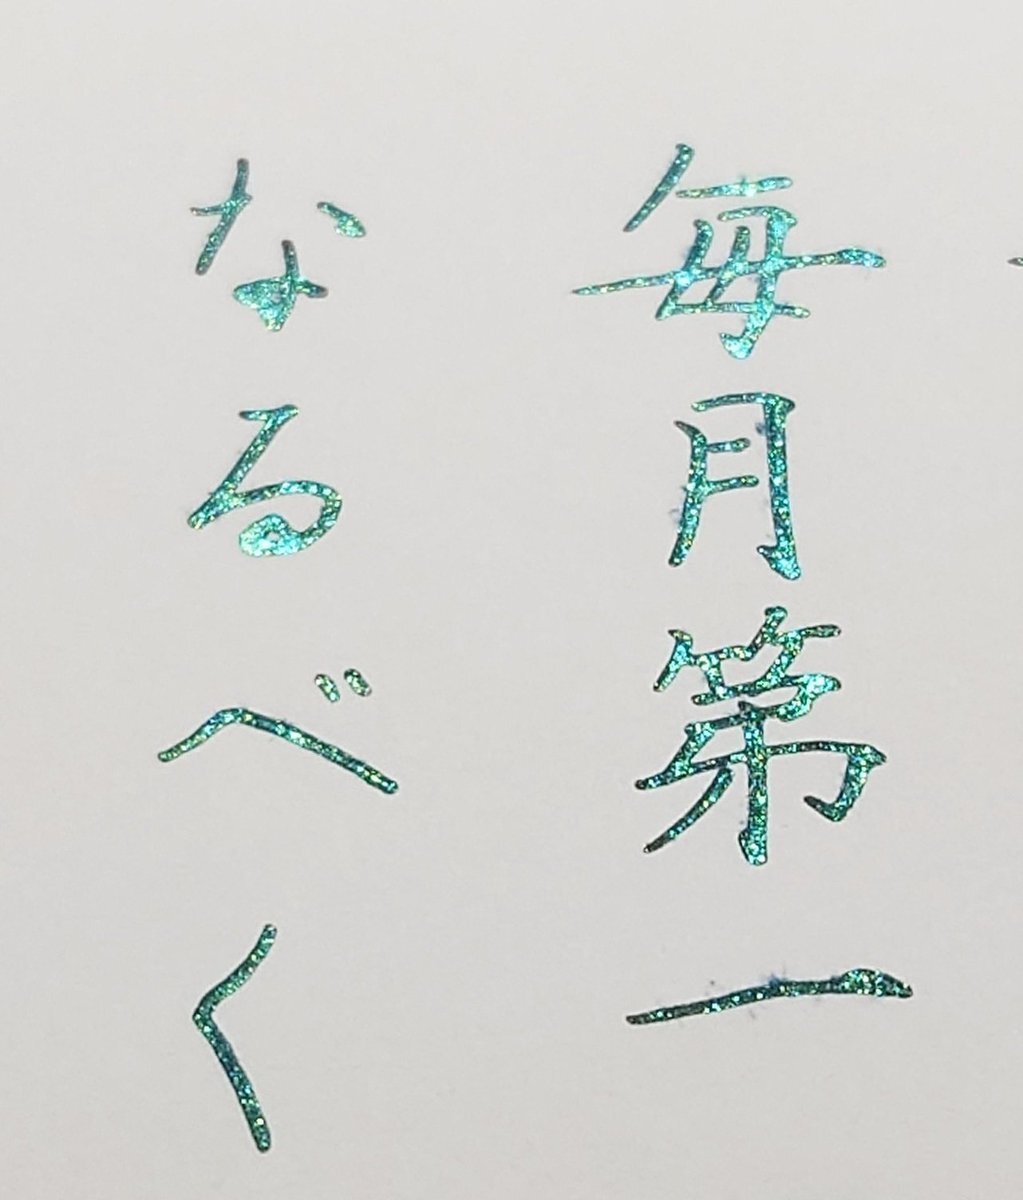 毎月第一
なるべく